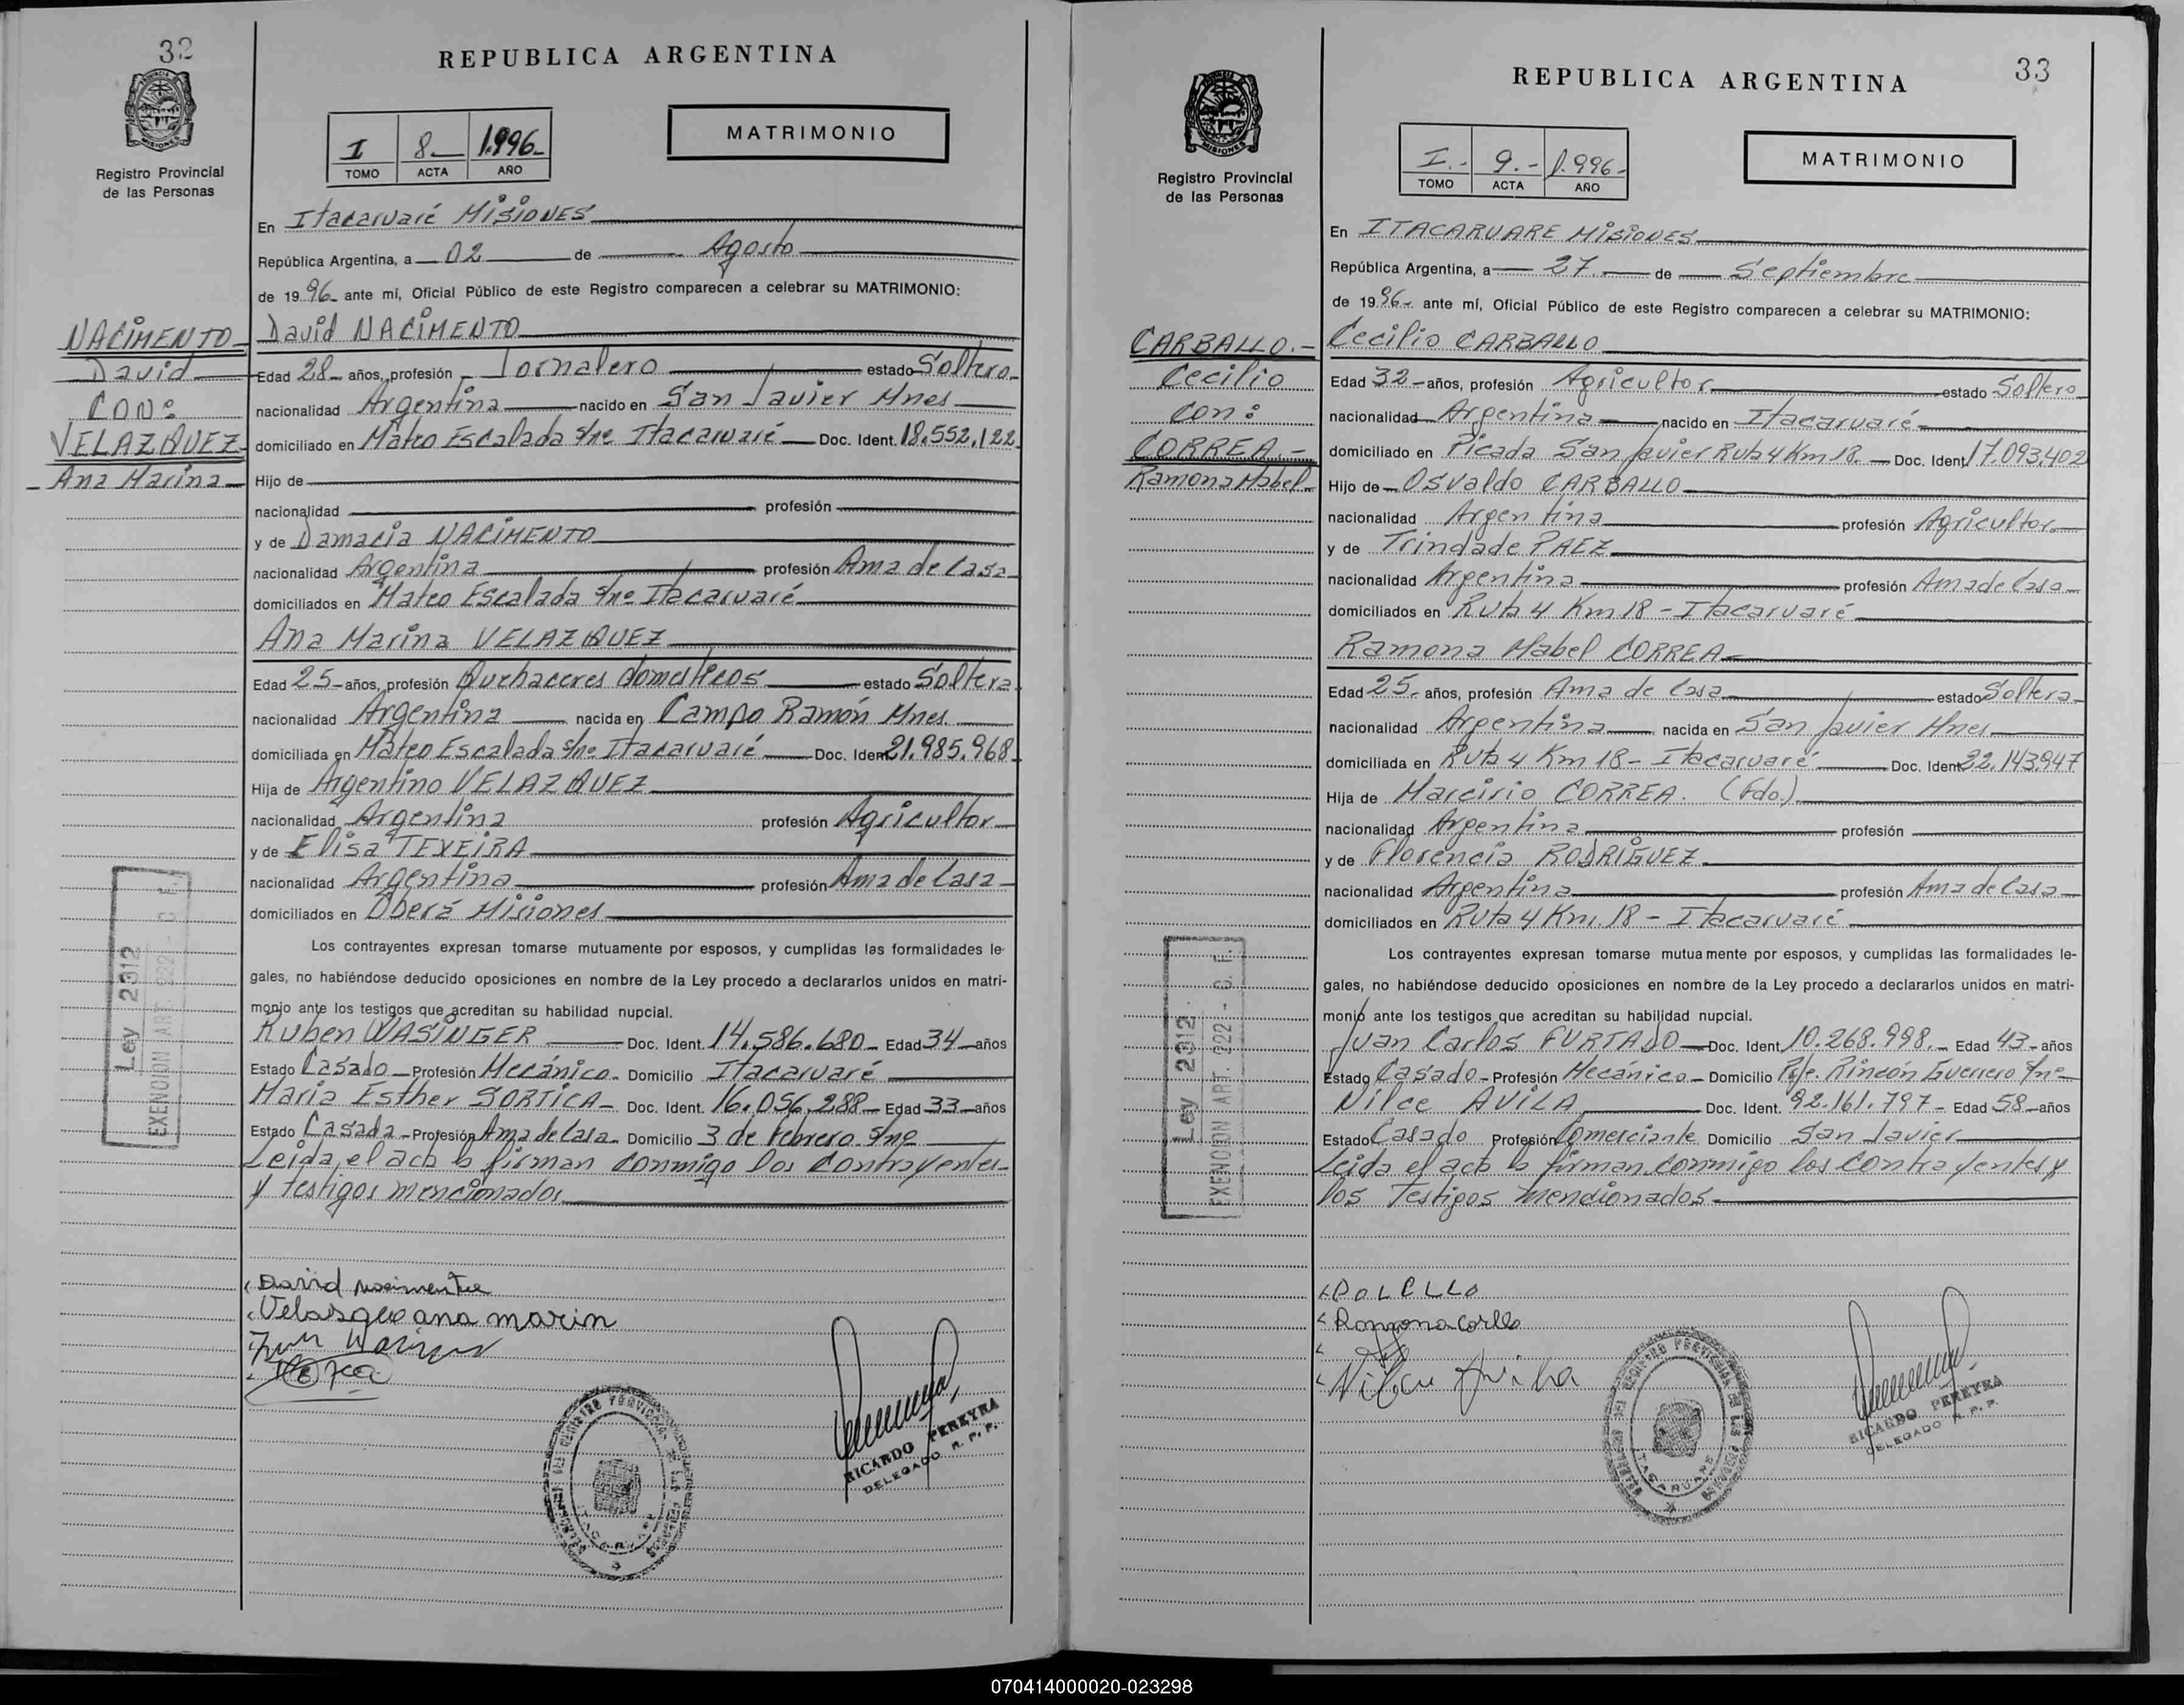 32
REPUBLICA ARGENTINA
Registro Provincial
de las Personas
I 8.- 1.996.-
TOMO ACTA AÑO
MATRIMONIO
En Itacaruaré MISIONES
República Argentina, a 02 de Agosto
de 1996- ante mí, Oficial Público de este Registro comparecen a celebrar su MATRIMONIO:
NACIMENTO
David
CON:
VELAZQUEZ
Ana Marina
David NACIMENTO
Edad 28- años, profesión Jornalero estado Soltero-
nacionalidad Argentina nacido en San Javier Mnes
domiciliado en Mateo Escalada s/nº Itacaruaré Doc. Ident. 18.552.122
Hijo de
nacionalidad profesión
y de Damacia NACIMENTO
nacionalidad Argentina profesión Ama de Casa
domiciliados en Mateo Escalada s/nº Itacaruaré
Ana Marina VELAZQUEZ
Edad 25- años, profesión Quehaceres domesticos estado Soltera
nacionalidad Argentina nacida en Campo Ramón Mnes
domiciliada en Mateo Escalada s/nº Itacaruaré Doc. Ident. 21.985.968
Hija de Argentino VELAZQUEZ
nacionalidad Argentina profesión Agricultor
y de Elisa TEXEIRA
nacionalidad Argentina profesión Ama de Casa
domiciliados en Oberá Misiones
Los contrayentes expresan tomarse mutuamente por esposos, y cumplidas las formalidades le-
gales, no habiéndose deducido oposiciones en nombre de la Ley procedo a declararlos unidos en matri-
monio ante los testigos que acreditan su habilidad nupcial.
Ruben WASINGER Doc. Ident. 14.586.680- Edad 34- años
Estado Casado- Profesión Mecánico- Domicilio Itacaruaré
Maria Esther SORTICA- Doc. Ident. 16.056.288- Edad 33- años
Estado Casada- Profesión Ama de Casa- Domicilio 3 de Febrero s/nº
Leida el acta la firman conmigo los contrayentes
y testigos mencionados
Ley 2312
EXENCION ART. 222 - C. F.
David Nacimento
Velasque ana marin
RICARDO PEREYRA
DELEGADO R. P. P.
33
REPUBLICA ARGENTINA
Registro Provincial
de las Personas
I.- 9.- 1.996-
TOMO ACTA AÑO
MATRIMONIO
En ITACARUARE MISIONES
República Argentina, a 27. de Septiembre
de 1996- ante mí, Oficial Público de este Registro comparecen a celebrar su MATRIMONIO:
CARBALLO.-
Cecilio
con:
CORREA.-
Ramona Mabel-
Cecilio CARBALLO
Edad 32- años, profesión Agricultor estado Soltero
nacionalidad Argentina nacido en Itacaruaré
domiciliado en Picada San Javier Ruta 4 Km 18. Doc. Ident. 17.093.402
Hijo de Osvaldo CARBALLO
nacionalidad Argentina profesión Agricultor
y de Trindade PAEZ
nacionalidad Argentina profesión Ama de Casa
domiciliados en Ruta 4 Km 18 - Itacaruaré
Ramona Mabel CORREA
Edad 25- años, profesión Ama de Casa estado Soltera
nacionalidad Argentina nacida en San Javier Mnes
domiciliada en Ruta 4 Km 18 - Itacaruaré Doc. Ident. 22.143.947
Hija de Marcirio CORREA. (fdo.)
nacionalidad Argentina profesión
y de Florencia RODRIGUEZ
nacionalidad Argentina profesión Ama de Casa
domiciliados en Ruta 4 Km. 18 - Itacaruaré
Los contrayentes expresan tomarse mutuamente por esposos, y cumplidas las formalidades le-
gales, no habiéndose deducido oposiciones en nombre de la Ley procedo a declararlos unidos en matri-
monio ante los testigos que acreditan su habilidad nupcial.
Juan Carlos FURTADO Doc. Ident. 10.268.998.- Edad 43- años
Estado Casado- Profesión Mecánico- Domicilio Pje. Rincón Guerrero s/nº
Nilce AVILA Doc. Ident. 92.161.797- Edad 58- años
Estado Casado Profesión Comerciante Domicilio San Javier
Leida el acta la firman conmigo los contrayentes y
los Testigos mencionados
Ley 2312
EXENCION ART. 222 - C. F.
RICARDO PEREYRA
DELEGADO R. P. P.
ITACARUARE
070414000020-023298